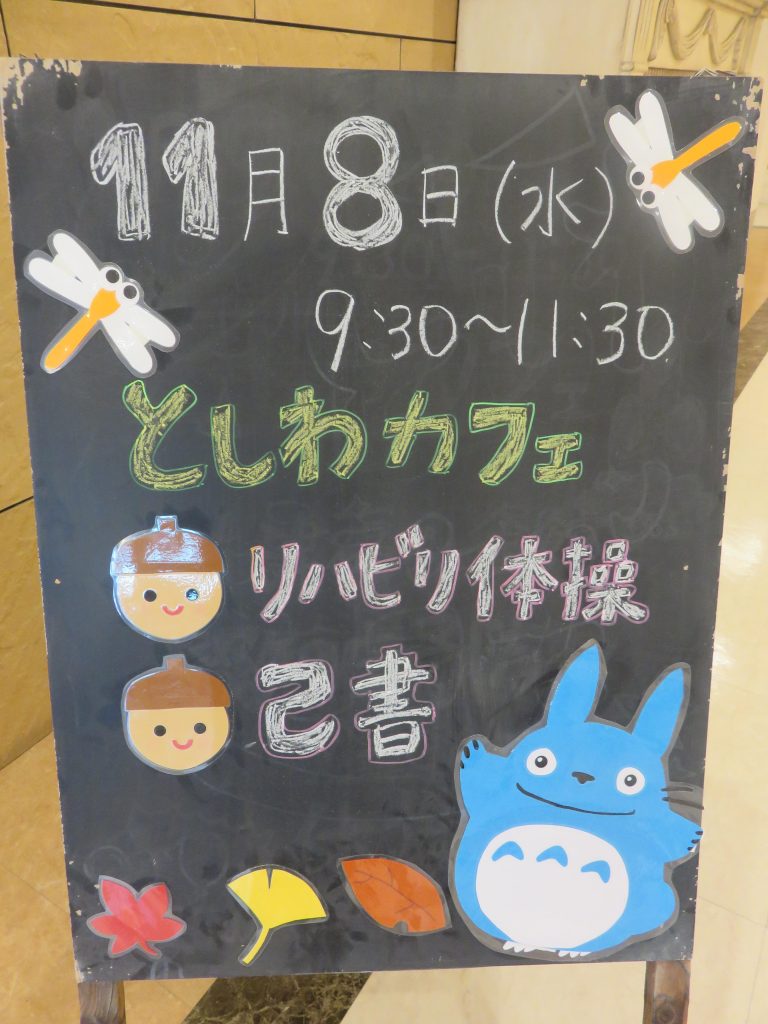 11月8日(水)
9:30~11:30
としわカフェ
リハビリ体操
己書